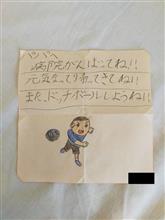 パパへ
病院がんばってね!!
元気なって帰ってきてね!!
また、ドッチボールしようね!!